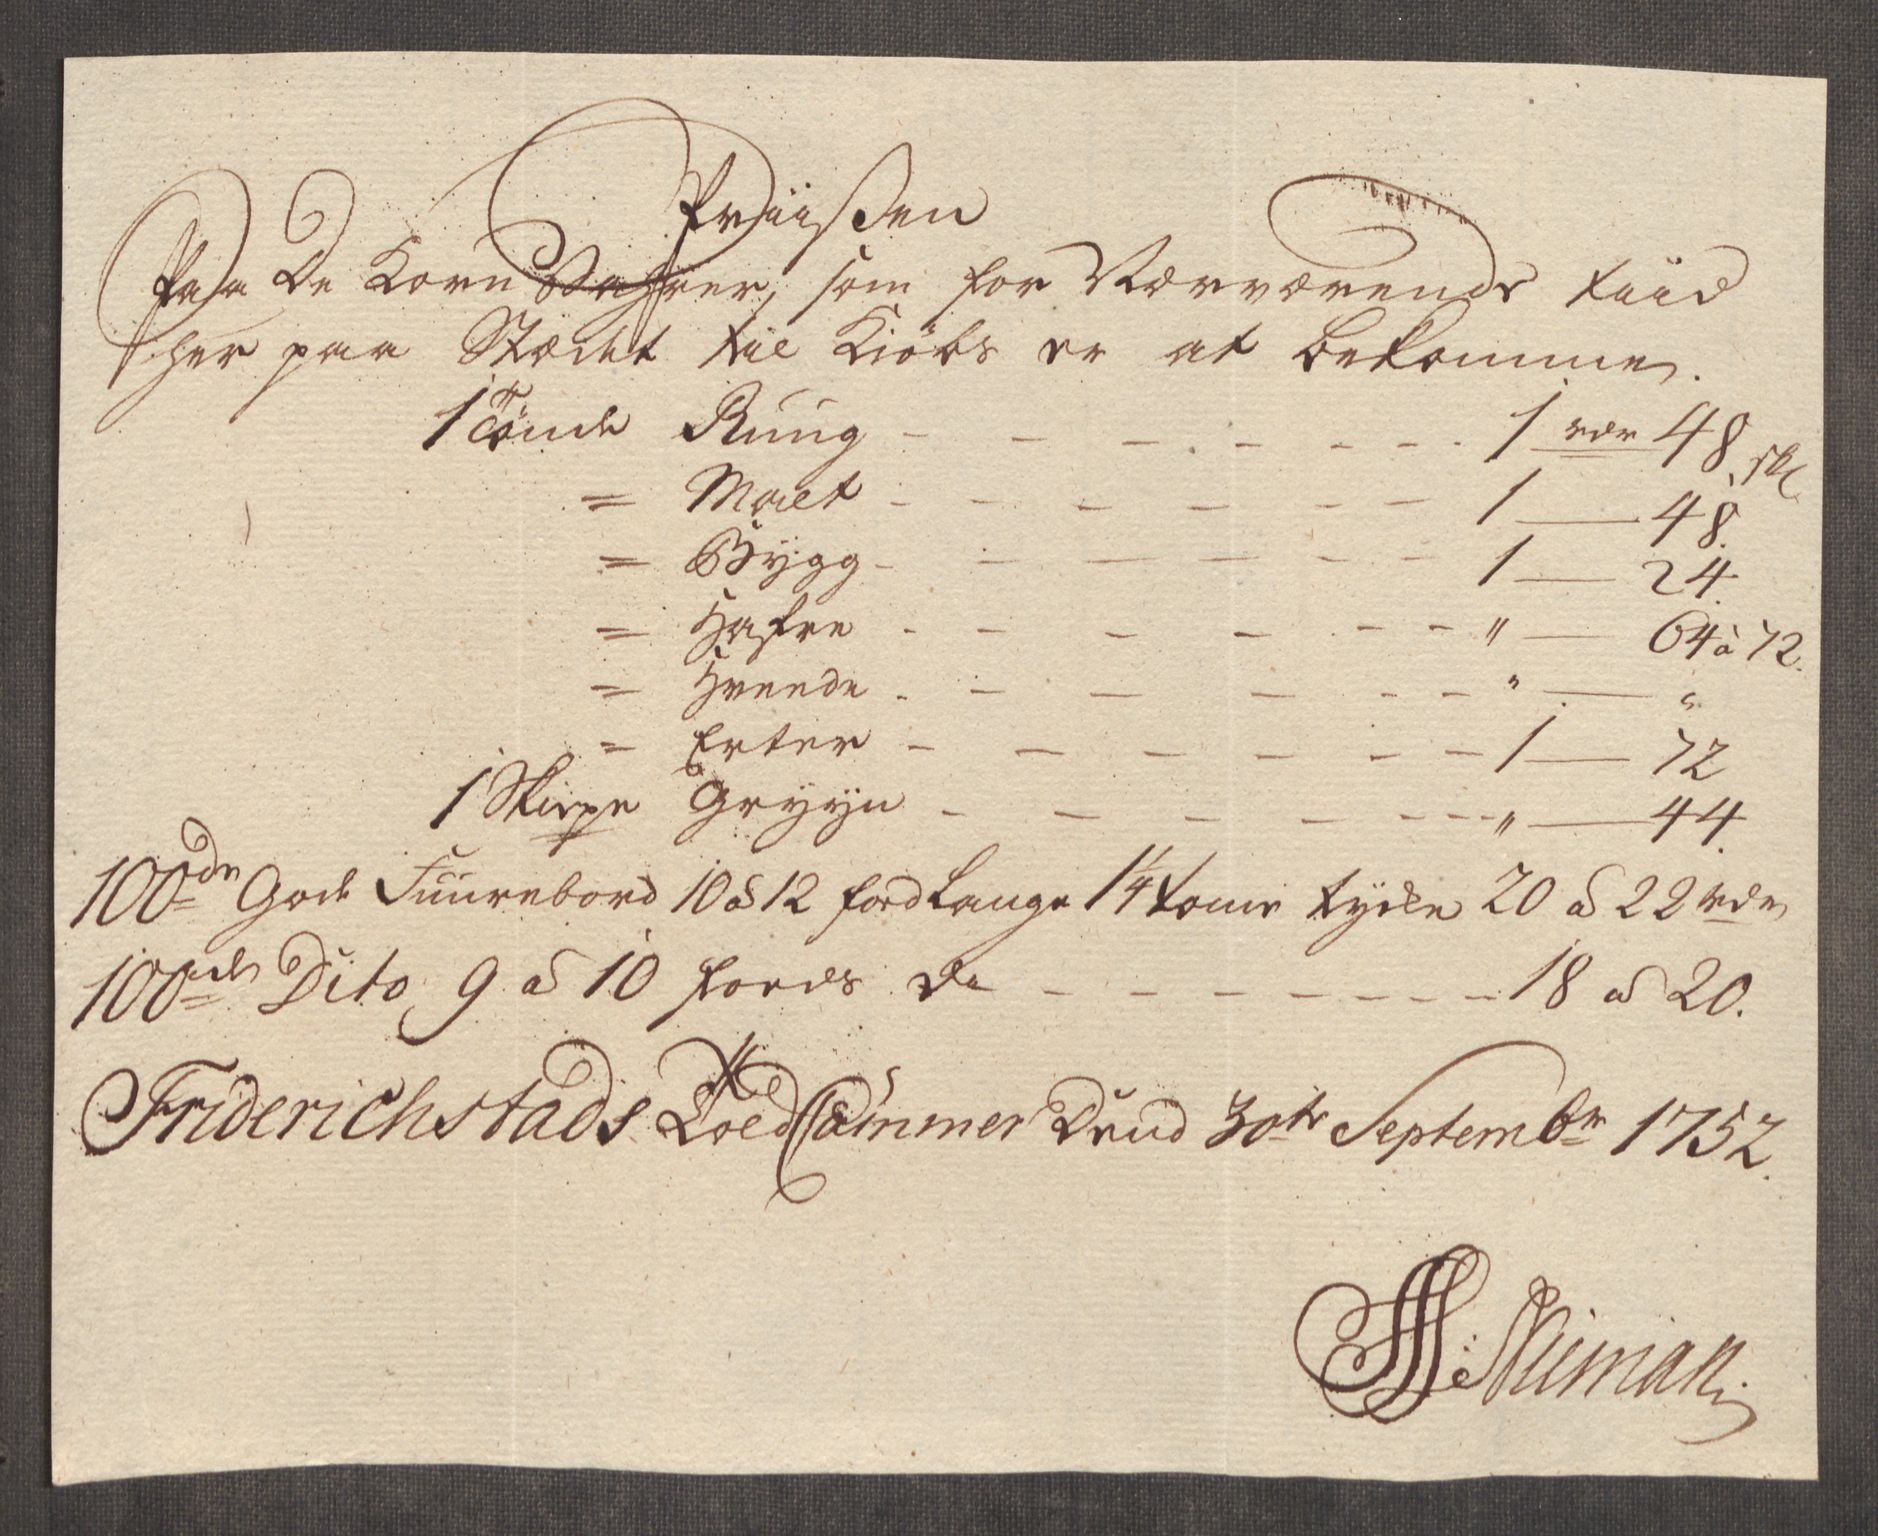 Priisen
Paa De Korn Vahrer, som for Nærværende tiid
her paa Stædet til Kiöbs er at bekomme.
1 Tönde Rüüg - - - - - - - 1 rdr 48 skl
= Malt - - - - - - 1 — 48.
= Bÿgg - - - - - - 1 — 24.
= Hafre - - - - - - - " — 64 à 72.
= Hveede - - - - - - - " — "
= Erter - - - - - - - 1 — 72
1 Skieppe Gryyn - - - - - - - " — 44.
100de Gode Füürebord 10 à 12 food Lange 1 1/4 tome tyche 20 à 22 rdr
100de Dito 9 à 10 foeds de - - - - - - - - 18 à 20.
Friderichstads Toed Cammer Dend 30te Septembr 1752.